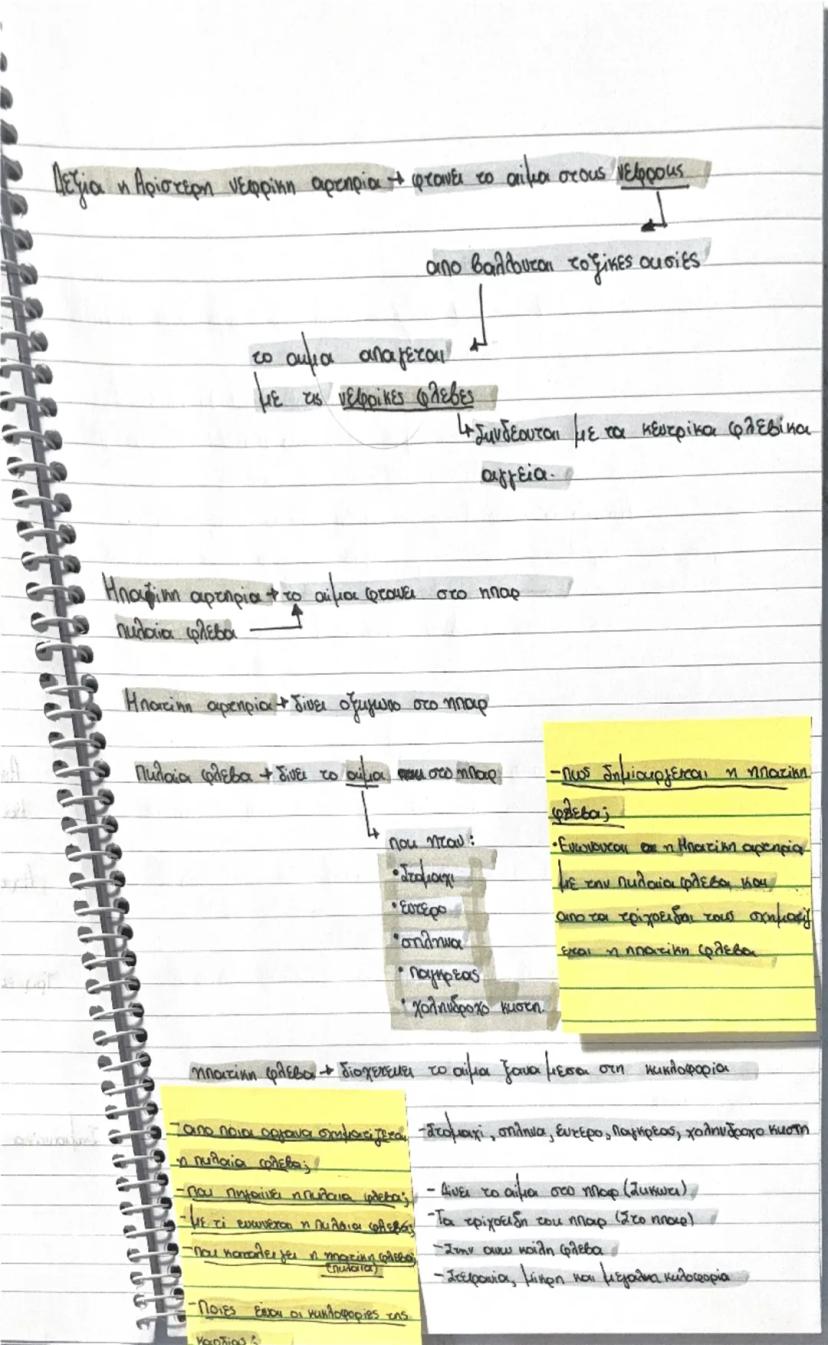 Δεξια η Αριστερη νεφρικη αρτηρια → φτανει το αίμα στους νεφρους
απο βαλλονται τοξικες ουσιες
το αιμα απαγεται
με τις νεφρικες φλεβες
↳ Συνδεονται με τα κεντρικα φλεβικα
αγγεία.
Ηπατικη αρτηρια → το αίμα φτανει στο ηπαρ
πυλαία φλεβα
Ηπατικη αρτηρια → δινει οξυγωνο στο ηπαρ
Πυλαία φλεβα → δινει το αίμα στο ηπαρ
που ηταν:
• Στομαχι
• εντερο
• σπληνα
• παγκρεας
• χοληνδροχο κυστη.
- Πως δημιουργειται η ηπατικη
φλεβα;
• Ενωνονται η Ηπατικη αρτηρια
με την πυλαία φλεβα και
απο τα τριχοειδη τους σχηματιζ
εται η ηπατικη φλεβα
ηπατικη φλεβα → διοχετευει το αίμα ξανα μεσα στη κυκλοφορία
- απο ποια οργανα σχηματιζεται
η πυλαία φλεβα;
- που πηγαίνει η πυλαία φλεβα;
- με τι ενωνεται η πυλαια φλεβα;
- που καταλειγει η ηπατικη φλεβα;
(πυλαία)
- Ποιες ειναι οι κυκλοφορίες της
καρδιας;
- Στομαχι, σπληνα, εντερο, παγκρεας, χοληνδροχο κυστη
- Δινει το αίμα στο ηπαρ (Συκωτι)
- Τα τριχοειδη του ηπαρ (Στο ηπαρ)
- Στην ανω κοιλη φλεβα
- Στεφανια, μικρη και μεγαλη κυλοφορία